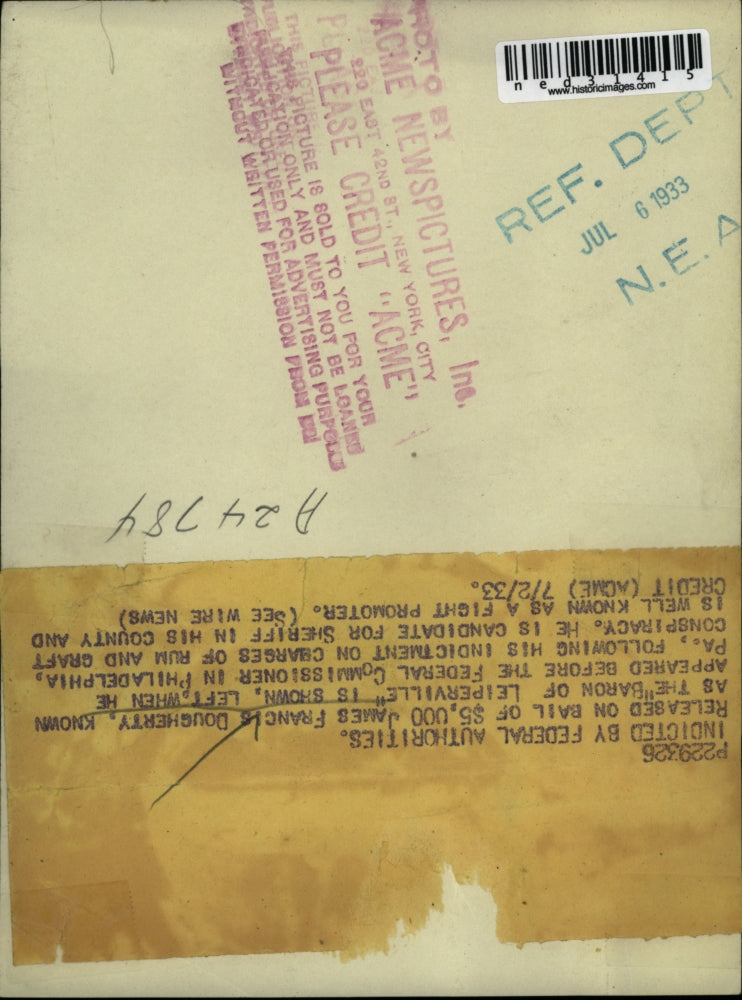 ned31415
www.historicimages.com
REF. DEPT
JUL 6 1933
N. E. A
PHOTO BY
ACME NEWSPICTURES, Inc.
220 EAST 42ND ST., NEW YORK, CITY
PLEASE CREDIT "ACME"
THIS PICTURE IS SOLD TO YOU FOR YOUR
PUBLICATION ONLY AND MUST NOT BE LOANED
SYNDICATED OR USED FOR ADVERTISING PURPOSES
WITHOUT WRITTEN PERMISSION FROM US
A24784
P229326
INDICTED BY FEDERAL AUTHORITIES.
RELEASED ON BAIL OF $5,000 JAMES FRANCIS DOUGHERTY, KNOWN
AS THE"BARON OF LEIPERVILLE" IS SHOWN, LEFT, WHEN HE
APPEARED BEFORE THE FEDERAL COMMISSIONER IN PHILADELPHIA,
PA., FOLLOWING HIS INDICTMENT ON CHARGES OF RUM AND GRAFT
CONSPIRACY. HE IS CANDIDATE FOR SHERIFF IN HIS COUNTY AND
IS WELL KNOWN AS A FIGHT PROMOTER. (SEE WIRE NEWS)
CREDIT (ACME) 7/2/33.